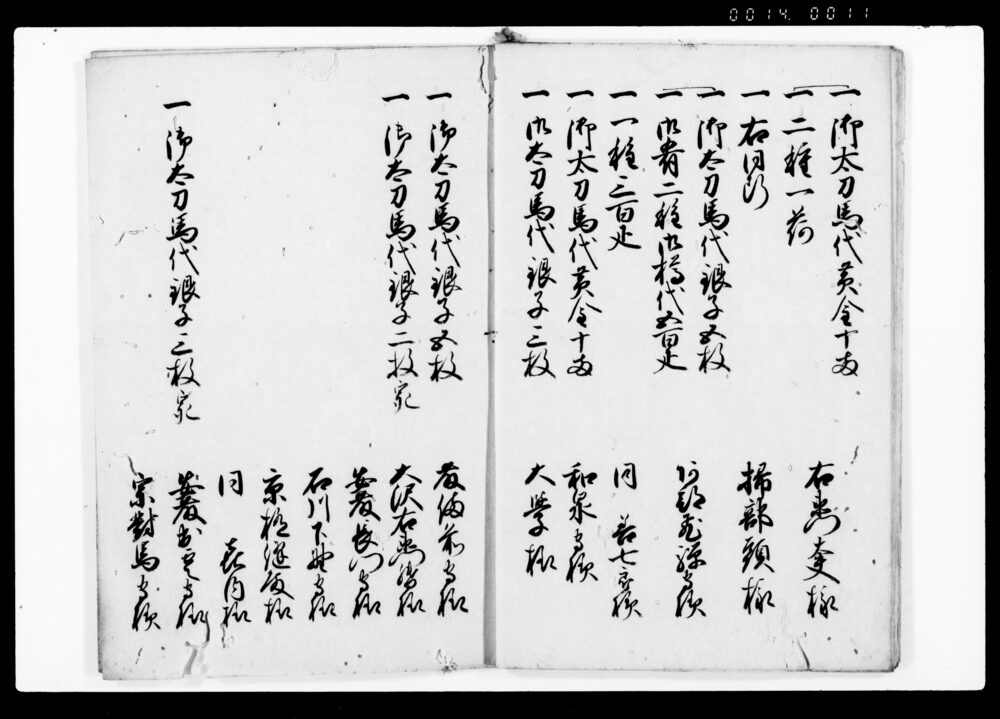 0014. 0011
一 御太刀馬代黄金十両
一 二種一荷
右衛門大夫様
一 右同断
掃部頭様
一 御太刀馬代銀子五枚
一 御肴二種御樽代五百疋
阿部飛騨守様
一 一種三百疋
同 七郎様
一 御太刀馬代黄金十両
和泉守様
一 御太刀馬代銀子三枚
大学様
一 御太刀馬代銀子五枚
備前守様
一 御太刀馬代銀子二枚宛
大沢右衛門督様
安藤長門守様
石川下野守様
京極様
同 様
一 御太刀馬代銀子三枚宛
安藤守様
宗對馬守様